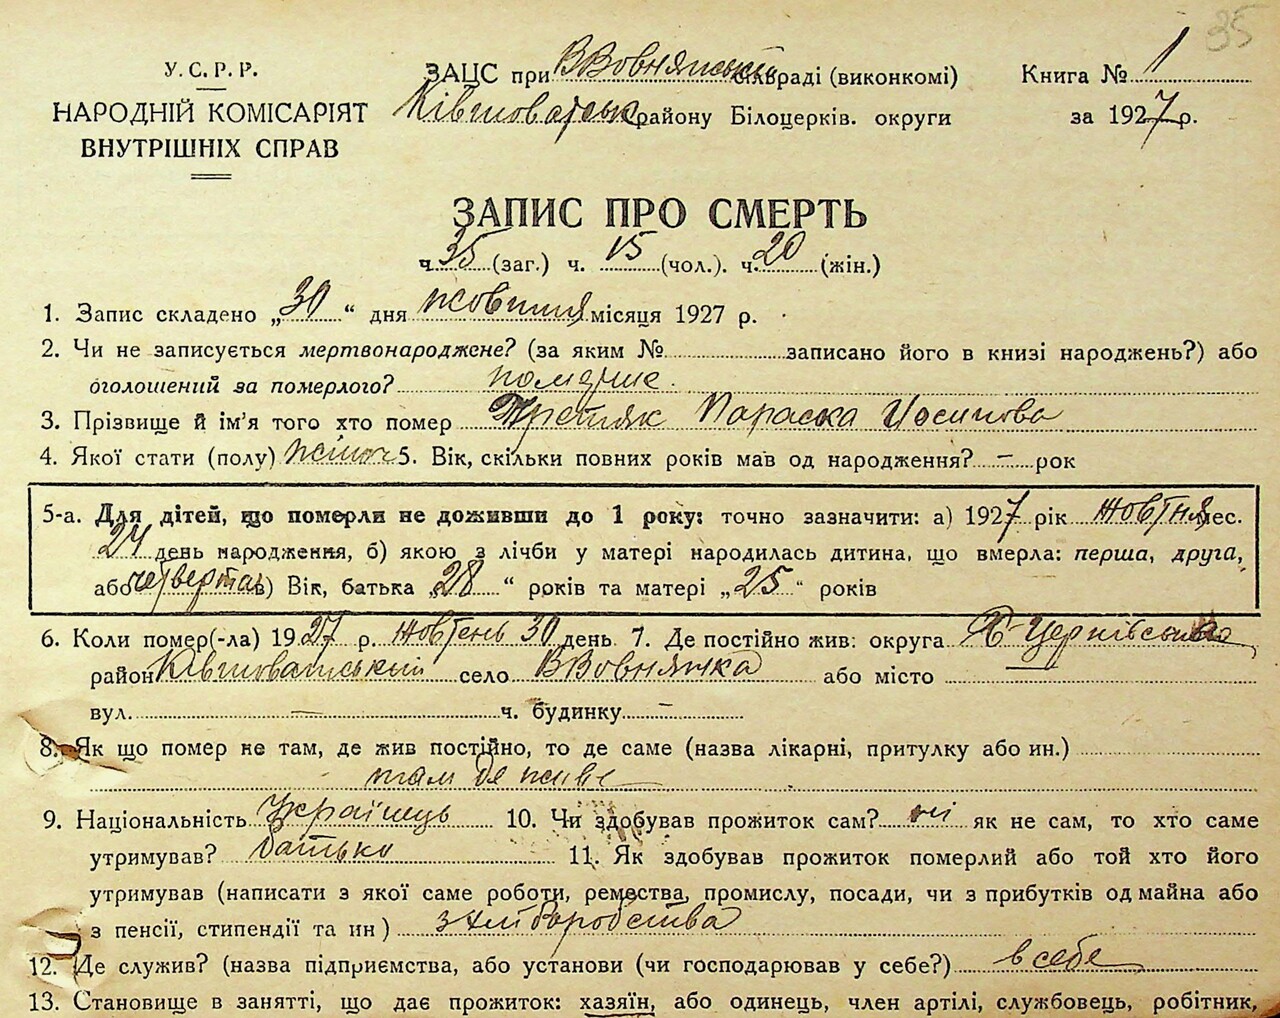 35
У. С. Р. Р.
НАРОДНІЙ КОМІСАРІЯТ
ВНУТРІШНІХ СПРАВ
ЗАЦС при ВВовнянський сільраді (виконкомі)
Ківшоватськ району Білоцерків. округи
Книга № 1
за 1927 р.
ЗАПИС ПРО СМЕРТЬ
ч. 35 (заг.) ч. 15 (чол.). ч. 20 (жін.)
1. Запис складено „30“ дня жовтня місяця 1927 р.
2. Чи не записується мертвонароджене? (за яким № записано його в книзі народжень?) або
оголошений за померлого? померше
3. Прізвище й ім'я того хто помер Третяк Параска Иосипова
4. Якої стати (полу) жіноч 5. Вік, скільки повних років мав од народження? – рок
5-а. Для дітей, що померли не доживши до 1 року: точно зазначити: а) 1927 рік жовтня мес.
24 день народження, б) якою з лічби у матері народилась дитина, що вмерла: перша, друга,
або четверта в) Вік, батька „28“ років та матері „25“ років
6. Коли помер(-ла) 1927 р. жовтень 30 день 7. Де постійно жив: округа Б-Церківська
район Ківшоватський село ВВовнянка або місто
вул. – ч. будинку –
8. Як що помер не там, де жив постійно, то де саме (назва лікарні, притулку або ин.)
там де живе
9. Національність Українець 10. Чи здобував прожиток сам? ні як не сам, то хто саме
утримував? батько 11. Як здобував прожиток померлий або той хто його
утримував (написати з якої саме роботи, ремества, промислу, посади, чи з прибутків од майна або
з пенсії, стипендії та ин) з хліборобства
12. Де служив? (назва підприємства, або установи (чи господарював у себе?) в себе
13. Становище в занятті, що дає прожиток: хазяїн, або одинець, член артілі, службовець, робітник,